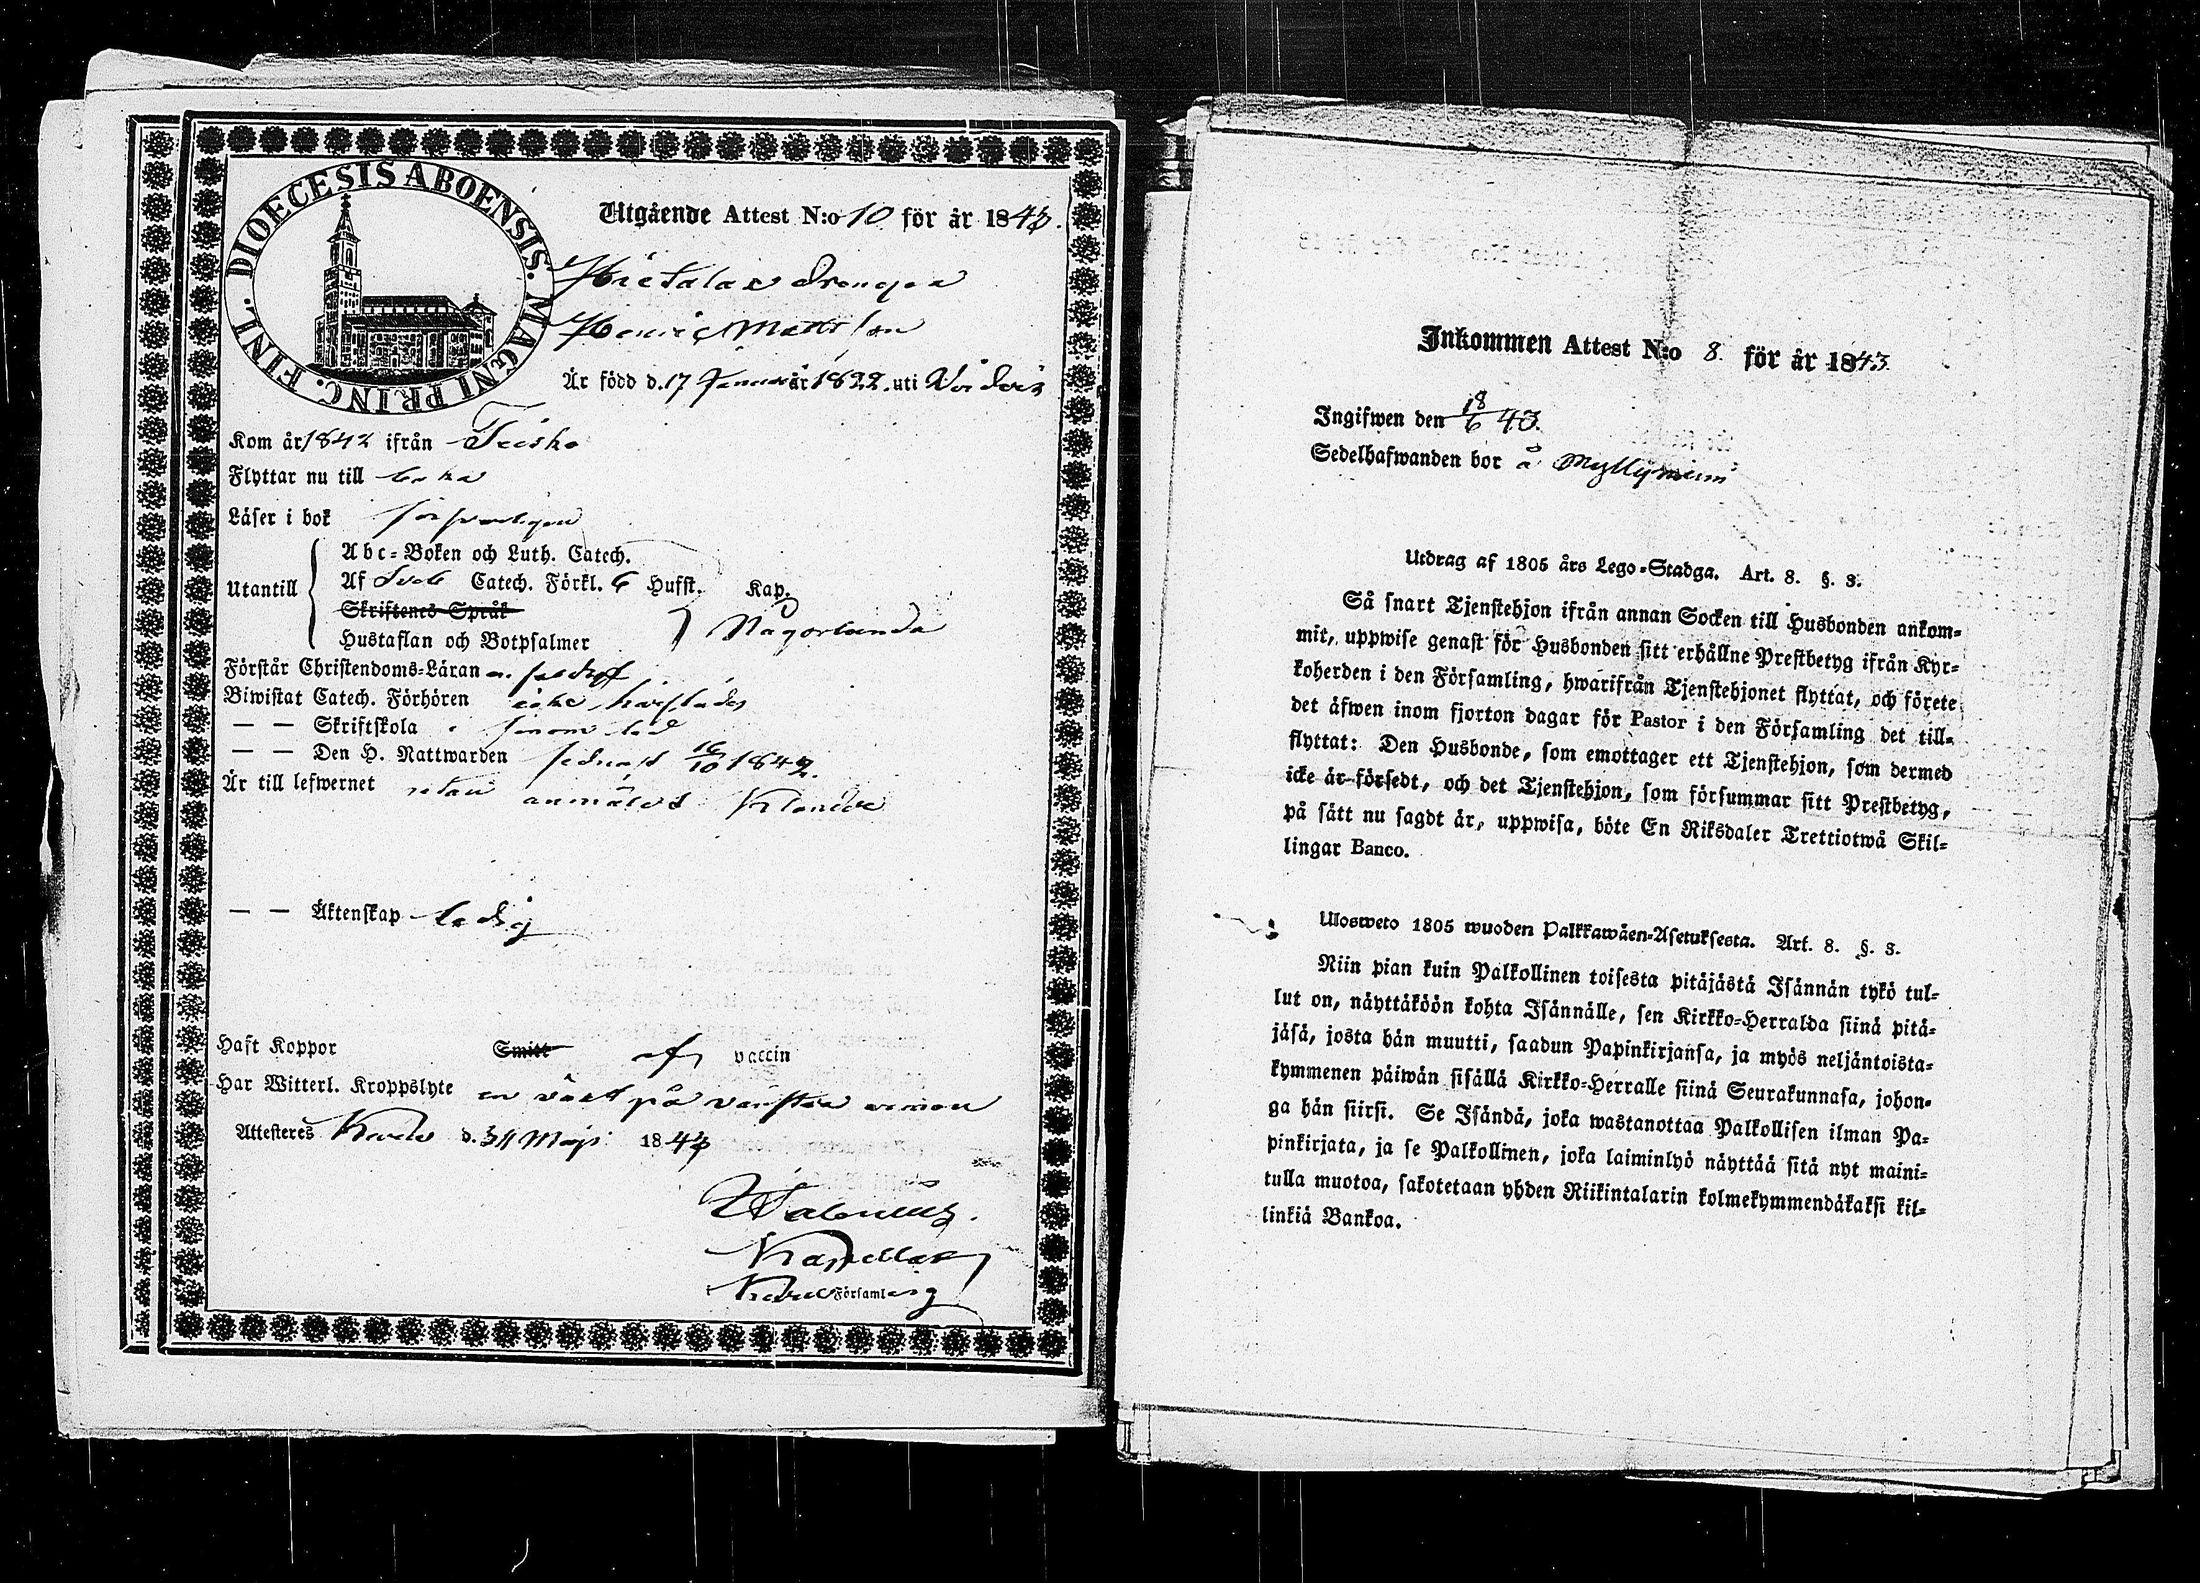 DIOECESIS ABOENSIS. MAGNI PRINC. FINL.
Utgående Attest N:o 10 för år 1843.
Drengen
Henric Mattsson
Är född d. 17 Januar 1822 uti
Kom år 1842 ifrån Teisko
Flyttar nu till
Läser i bok försvarligen
Utantill
Abc-Boken och Luth. Catech.
Af Sveb Catech. Förkl. 6 Hufst. Kap.
Skriftenes Språk
Hustaflan och Botpsalmer
Någorlunda
Förstår Christendoms-Läran
Biwistat Catech. Förhören icke
— — Skriftskola
— — Den H. Nattwarden sednast 16/10 1842.
Är till lefwernet utan anmäldt
— — Äktenskap ledig
Haft Koppor Smitt af vaccin
Har Witterl. Kroppslyte en på venstra
Attesteres d. 31 Maji 1843
Kapellan
Församling
Inkommen Attest N:o 8. för år 1843
Ingifwen den 18/6 43.
Sedelhafwanden bor å Myllyniemi
Utdrag af 1805 års Lego-Stadga. Art. 8. §. 3.
Så snart Tjenstehjon ifrån annan Socken till Husbonden ankom-
mit, uppwise genast för Husbonden sitt erhållne Prestbetyg ifrån Kyr-
koherden i den Församling, hwarifrån Tjenstehjonet flyttat, och förete
det äfwen inom fjorton dagar för Pastor i den Församling det till-
flyttat: Den Husbonde, som emottager ett Tjenstehjon, som dermed
icke är försedt, och det Tjenstehjon, som försummar sitt Prestbetyg,
på sätt nu sagdt är, uppwisa, böte En Riksdaler Trettiotwå Skil-
lingar Banco.
Ulosweto 1805 wuoden Palkkawäen-Asetuksesta. Art. 8. §. 3.
Niin pian kuin Palkollinen toisesta pitäjästä Isännän tykö tul-
lut on, näyttäköön kohta Isännälle, sen Kirkko-Herralda siinä pitä-
jäsä, josta hän muutti, saadun Papinkirjansa, ja myös neljäntoista-
kymmenen päiwän sisällä Kirkko-Herralle siinä Seurakunnasa, johon-
ga hän siirsi. Se Isändä, joka wastanottaa Palkollisen ilman Pa-
pinkirjata, ja se Palkollinen, joka laiminlyö näyttää sitä nyt maini-
tulla muotoa, sakotetaan yhden Riikintalarin kolmekymmendäkaksi kil-
linkiä Bankoa.